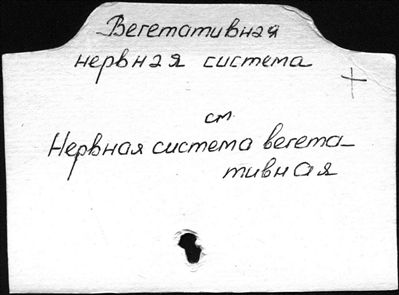 Вегетативная
нервная система
см
Нервная система вегета-
тивная